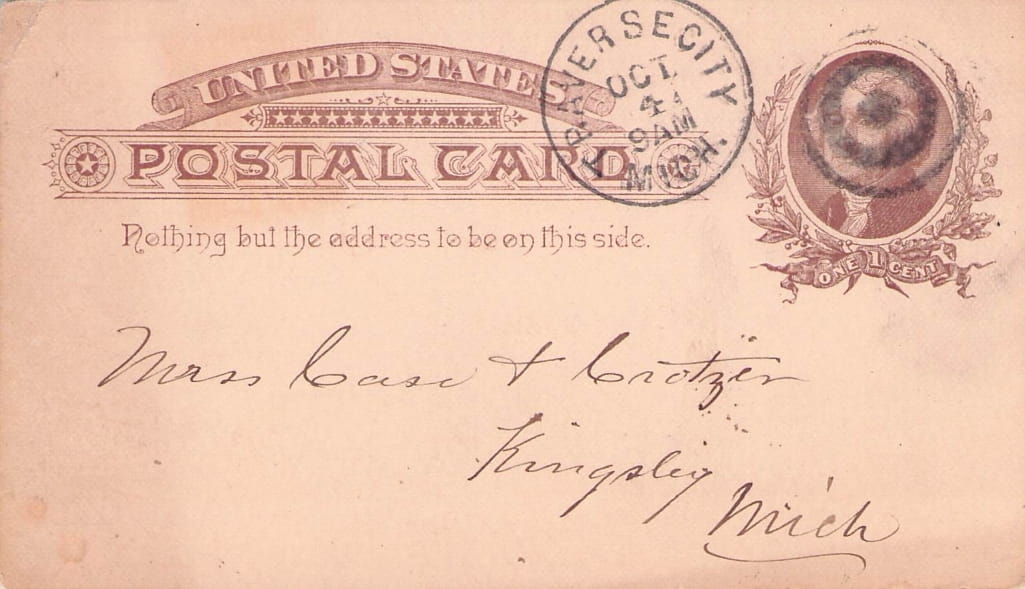 UNITED STATES
POSTAL CARD
Nothing but the address to be on this side.
TRAVERSE CITY
OCT
4
9AM
MICH.
ONE 1 CENT
Mess Case & Crotzer
Kingsley
Mich